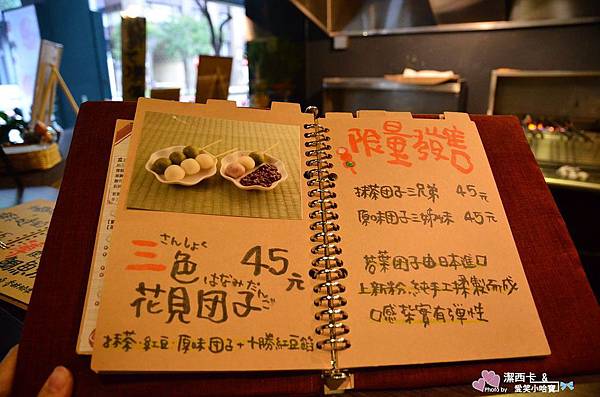 さんしょく
三色 45元
はなみだんご
花見団子
抹茶、紅豆、原味団子+十勝紅豆餡
限量發售
抹茶団子三兄弟 45元
原味団子三姊妹 45元
若葉団子由日本進口
上新粉,純手工揉製而成
口感紮實有彈性
潔西卡 &
Photo by 愛笑小哈寶